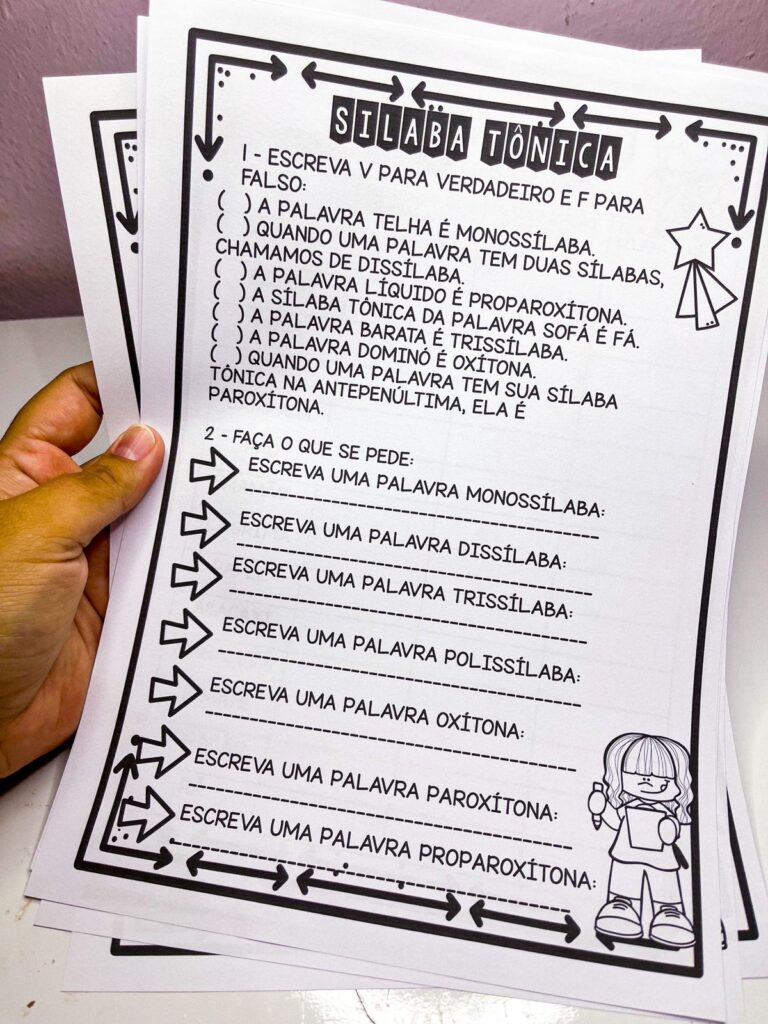 SÍLABA TÔNICA
1 - ESCREVA V PARA VERDADEIRO E F PARA
FALSO:
( ) A PALAVRA TELHA É MONOSSÍLABA.
( ) QUANDO UMA PALAVRA TEM DUAS SÍLABAS,
CHAMAMOS DE DISSÍLABA.
( ) A PALAVRA LÍQUIDO É PROPAROXÍTONA.
( ) A SÍLABA TÔNICA DA PALAVRA SOFÁ É FÁ.
( ) A PALAVRA BARATA É TRISSÍLABA.
( ) A PALAVRA DOMINÓ É OXÍTONA.
( ) QUANDO UMA PALAVRA TEM SUA SÍLABA
TÔNICA NA ANTEPENÚLTIMA, ELA É
PAROXÍTONA.
2 - FAÇA O QUE SE PEDE:
ESCREVA UMA PALAVRA MONOSSÍLABA:
ESCREVA UMA PALAVRA DISSÍLABA:
ESCREVA UMA PALAVRA TRISSÍLABA:
ESCREVA UMA PALAVRA POLISSÍLABA:
ESCREVA UMA PALAVRA OXÍTONA:
ESCREVA UMA PALAVRA PAROXÍTONA:
ESCREVA UMA PALAVRA PROPAROXÍTONA: